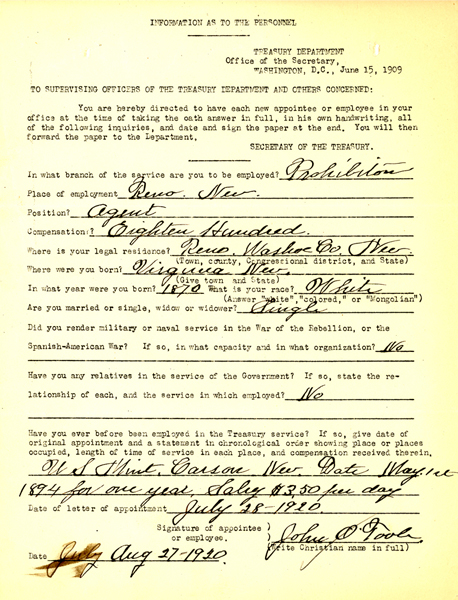 INFORMATION AS TO THE PERSONNEL
TREASURY DEPARTMENT
Office of the Secretary,
WASHINGTON, D.C., June 15, 1909
TO SUPERVISING OFFICERS OF THE TREASURY DEPARTMENT AND OTHERS CONCERNED:
You are hereby directed to have each new appointee or employee in your
office at the time of taking the oath answer in full, in his own handwriting, all
of the following inquiries, and date and sign the paper at the end. You will then
forward the paper to the Department.
SECRETARY OF THE TREASURY.
In what branch of the service are you to be employed? Prohibition
Place of employment Reno. Nev.
Position? Agent
Compensation? Eighten Hundred.
Where is your legal residence? Reno. Washoe Co, Nev
(Town, county, Congressional district, and State)
Where were you born? Virginia Nev.
(Give town and State)
In what year were you born? 1870 What is your race? White
(Answer "white", "colored," or "Mongolian")
Are you married or single, widow or widower? Single
Did you render military or naval service in the War of the Rebellion, or the
Spanish-American War? If so, in what capacity and in what organization? No
Have you any relatives in the service of the Government? If so, state the re-
lationship of each, and the service in which employed? No
Have you ever before been employed in the Treasury service? If so, give date of
original appointment and a statement in chronological order showing place or places
occupied, length of time of service in each place, and compensation received therein,
U S Mint, Carson, Nev. Date May 1st
1894 for one year. Salry $3.50 per day
Date of letter of appointment July 28-1920
Signature of appointee )
or employee. ) John O'Toole
(Write Christian name in full)
Date July Aug 27-1920.